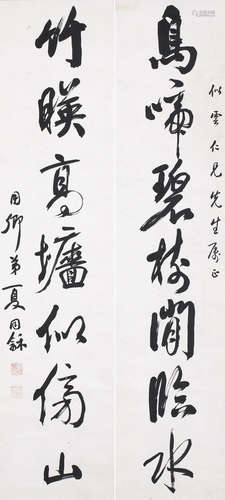 似雲仁兄先生屬正
鳥啼碧樹閒臨水
竹暎高墻似傍山
用卿弟夏同龢